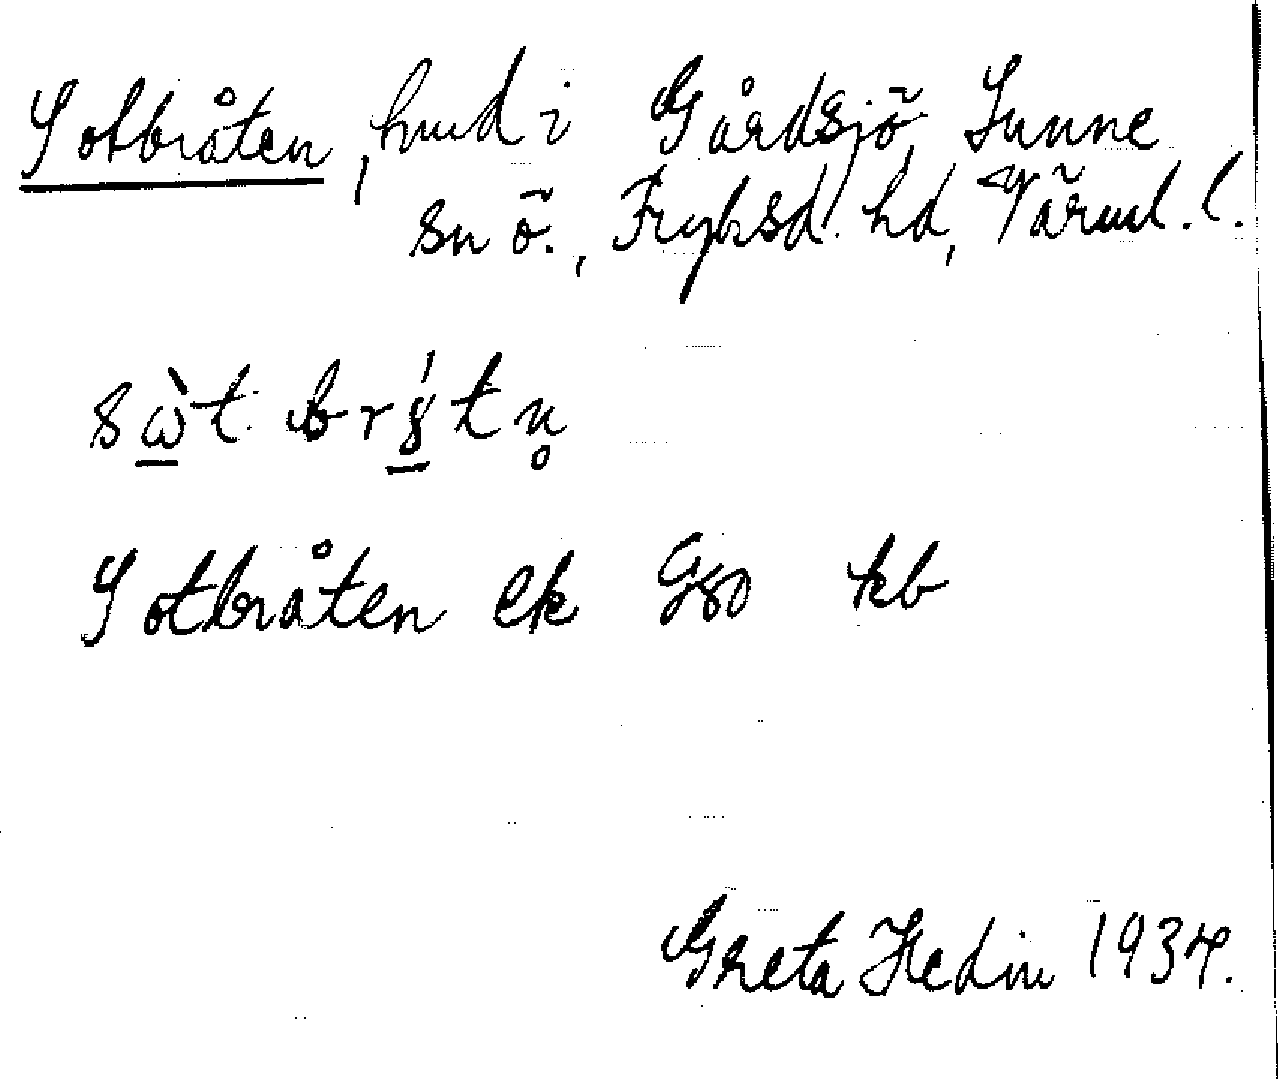 Sotbråten, hmd i Gårdsjö, Sunne
sn ö., Fryksd. hd, Värml. l.
sὼt brǵtn̥
Sotbråten ek G80 kb
Greta Hedin 1934.